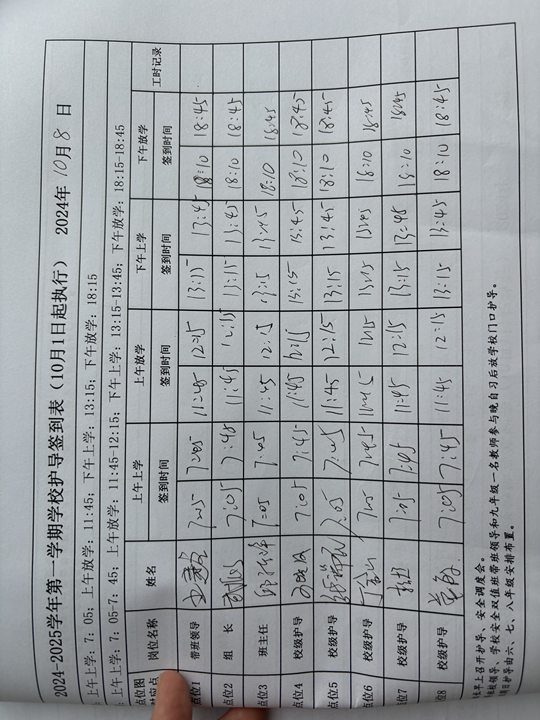 2024-2025学年第一学期学校护导签到表（10月1日起执行） 2024年 10月 8 日
上午上学：7: 05; 上午放学：11:45; 下午上学：13:15; 下午放学：18:15
上午上学：7: 05-7: 45; 上午放学：11:45-12:15; 下午上学：13:15-13:45; 下午放学：18:15-18:45
点位图 岗位名称 姓名 上午上学 上午放学 下午上学 下午放学 工时记录
对应点 签到时间 签到时间 签到时间 签到时间
点位1 带班领导 7:05 7:45 11:45 12:15 13:15 13:45 18:10 18:45
点位2 组 长 7:05 7:45 11:45 12:15 13:15 13:45 18:10 18:45
点位3 班主任 7:05 7:45 11:45 12:15 13:15 13:45 18:10 18:45
点位4 校级护导 7:05 7:45 11:45 12:15 13:15 13:45 18:10 18:45
点位5 校级护导 7:05 7:45 11:45 12:15 13:15 13:45 18:10 18:45
点位6 校级护导 7:05 7:45 11:45 12:15 13:15 13:45 18:10 18:45
点位7 校级护导 7:05 7:45 11:45 12:15 13:15 13:45 18:10 18:45
点位8 校级护导 7:05 7:45 11:45 12:15 13:15 13:45 18:10 18:45
早上召开护导、安全调度会。
校级领导、学校安全双值班带班领导和九年级一名教师参与晚自习后放学校门口护导。
护导由六、七、八年级安排布置。